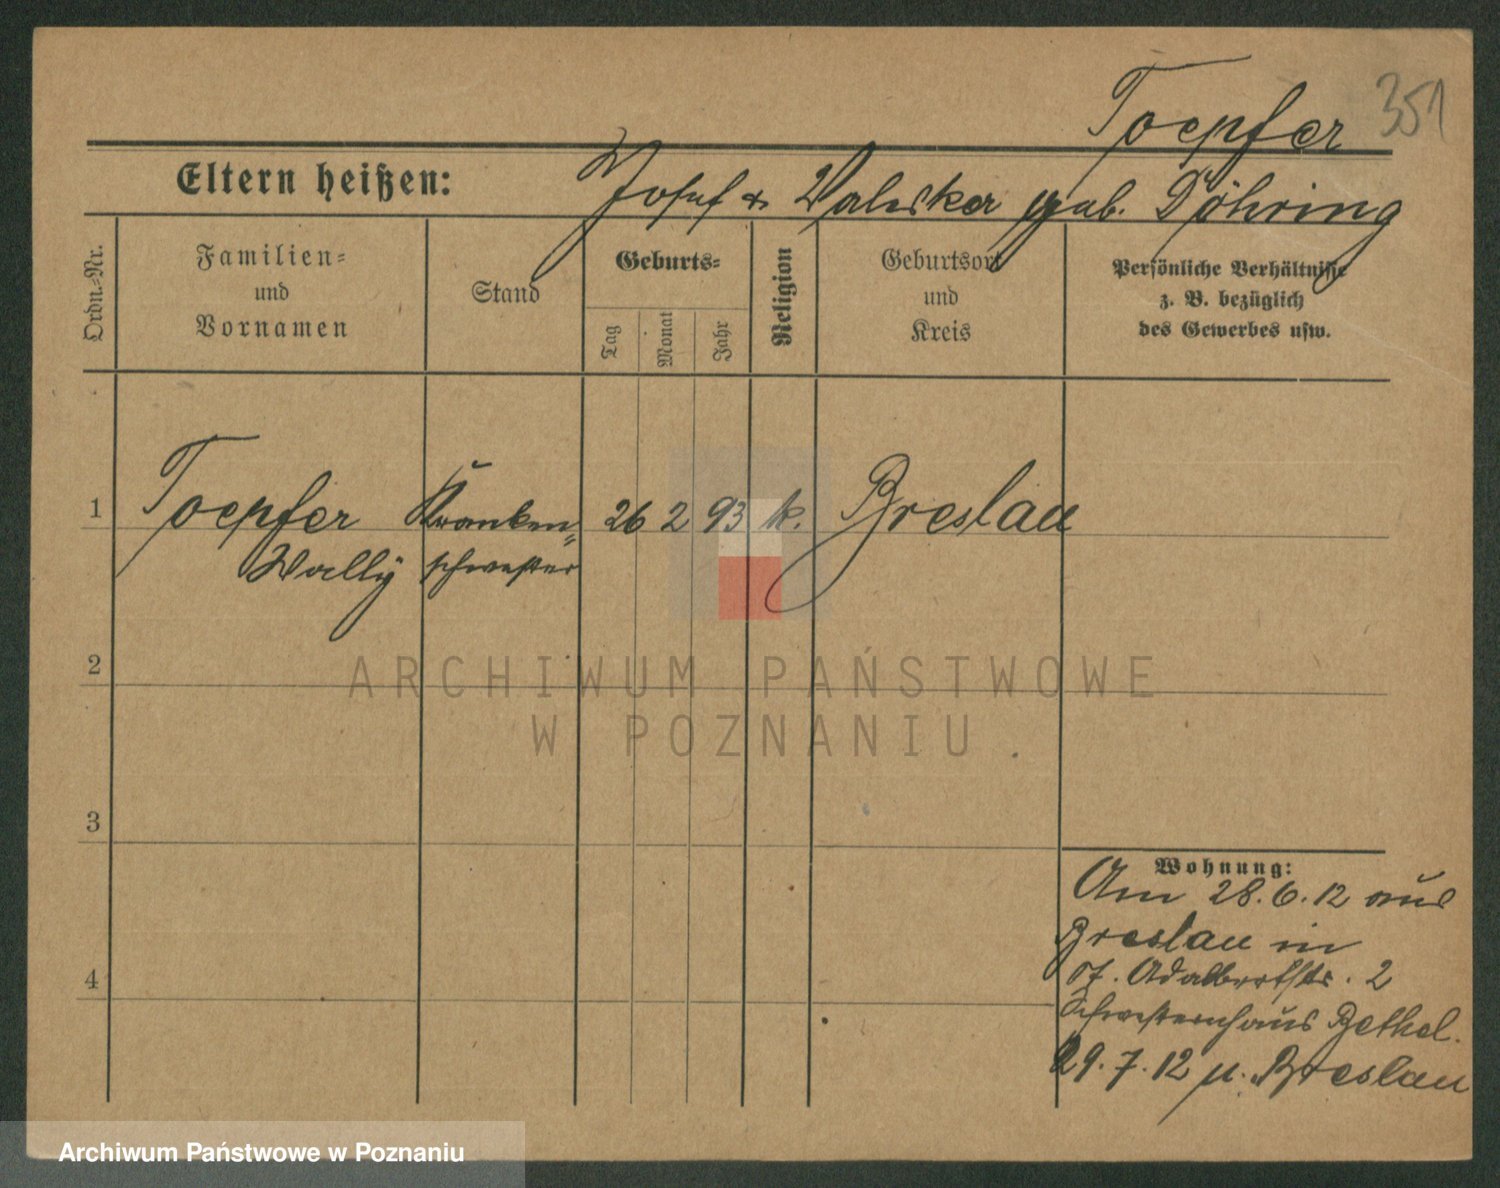 Toepfer 351
Eltern heißen: Josef & Valeska geb. Döhring
Ordn.-Nr.
Familien-
und
Vornamen
Stand
Geburts-
Tag
Monat
Jahr
Religion
Geburtsort
und
Kreis
Persönliche Verhältnisse
z. B. bezüglich
des Gewerbes usw.
1 Toepfer Kranken= 26 2 93 k. Breslau
Wally schwester
2
ARCHIWUM PAŃSTWOWE
W POZNANIU
3
Wohnung:
Am 28.6.12 aus
Breslau in
4 St. Adalbertstr. 2
Schwesternhaus Bethel.
29.7.12 n. Breslau
Archiwum Państwowe w Poznaniu